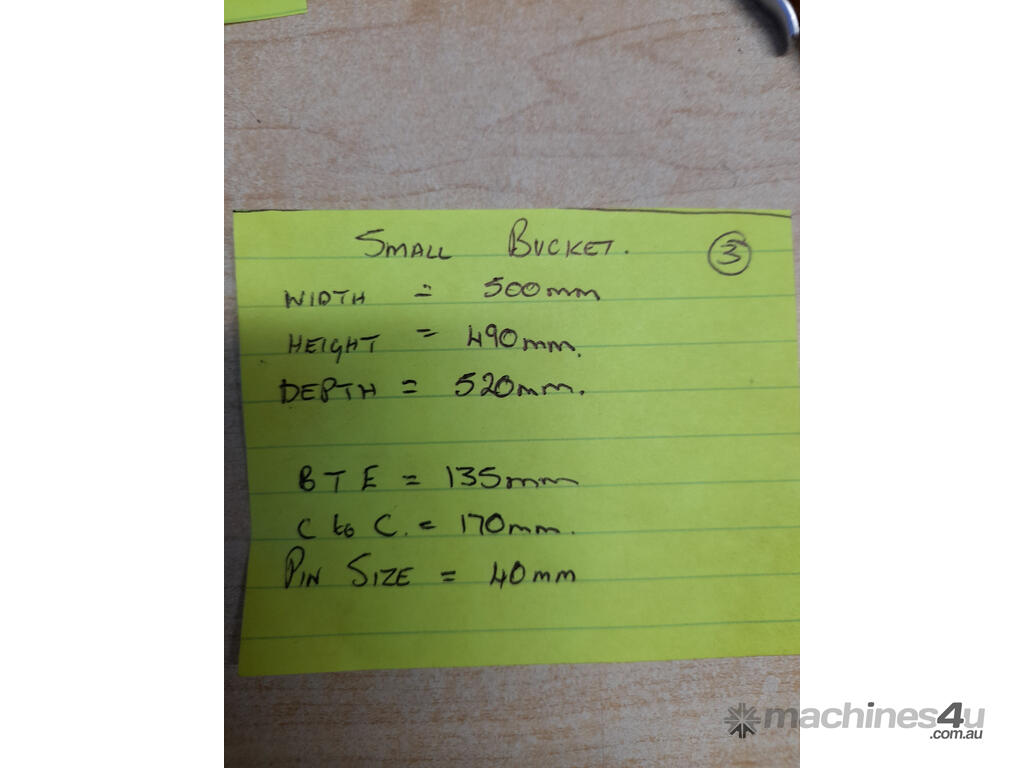 SMALL BUCKET. 3
WIDTH = 500mm
HEIGHT = 490mm.
DEPTH = 520mm.
BTE = 135mm
C to C. = 170mm.
PIN SIZE = 40mm
machines4u
.com.au